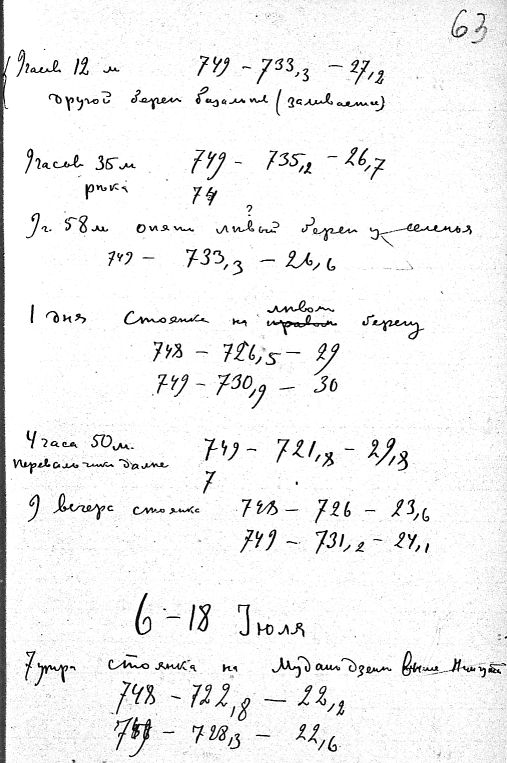 63
9 часов 12 м 749 – 733,3 – 27,2
другой берег базальт (заливается)
9 часов 35 м 749 – 735,2 – 26,7
река 74
9 ч. 58 м опять левый ? берег у селенья
749 – 733,3 – 26,6
1 дня стоянка на правом левом берегу
748 – 726,5 – 29
749 – 730,9 – 30
4 часа 50 м. 749 – 721,8 – 29,8
перевальчик далее 7
9 вечера стоянка 748 – 726 – 23,6
749 – 731,2 – 24,1
6 – 18 Июля
7 утра стоянка на Мудандзян выше Нингуты
748 – 722,8 – 22,2
749 – 728,3 – 22,6